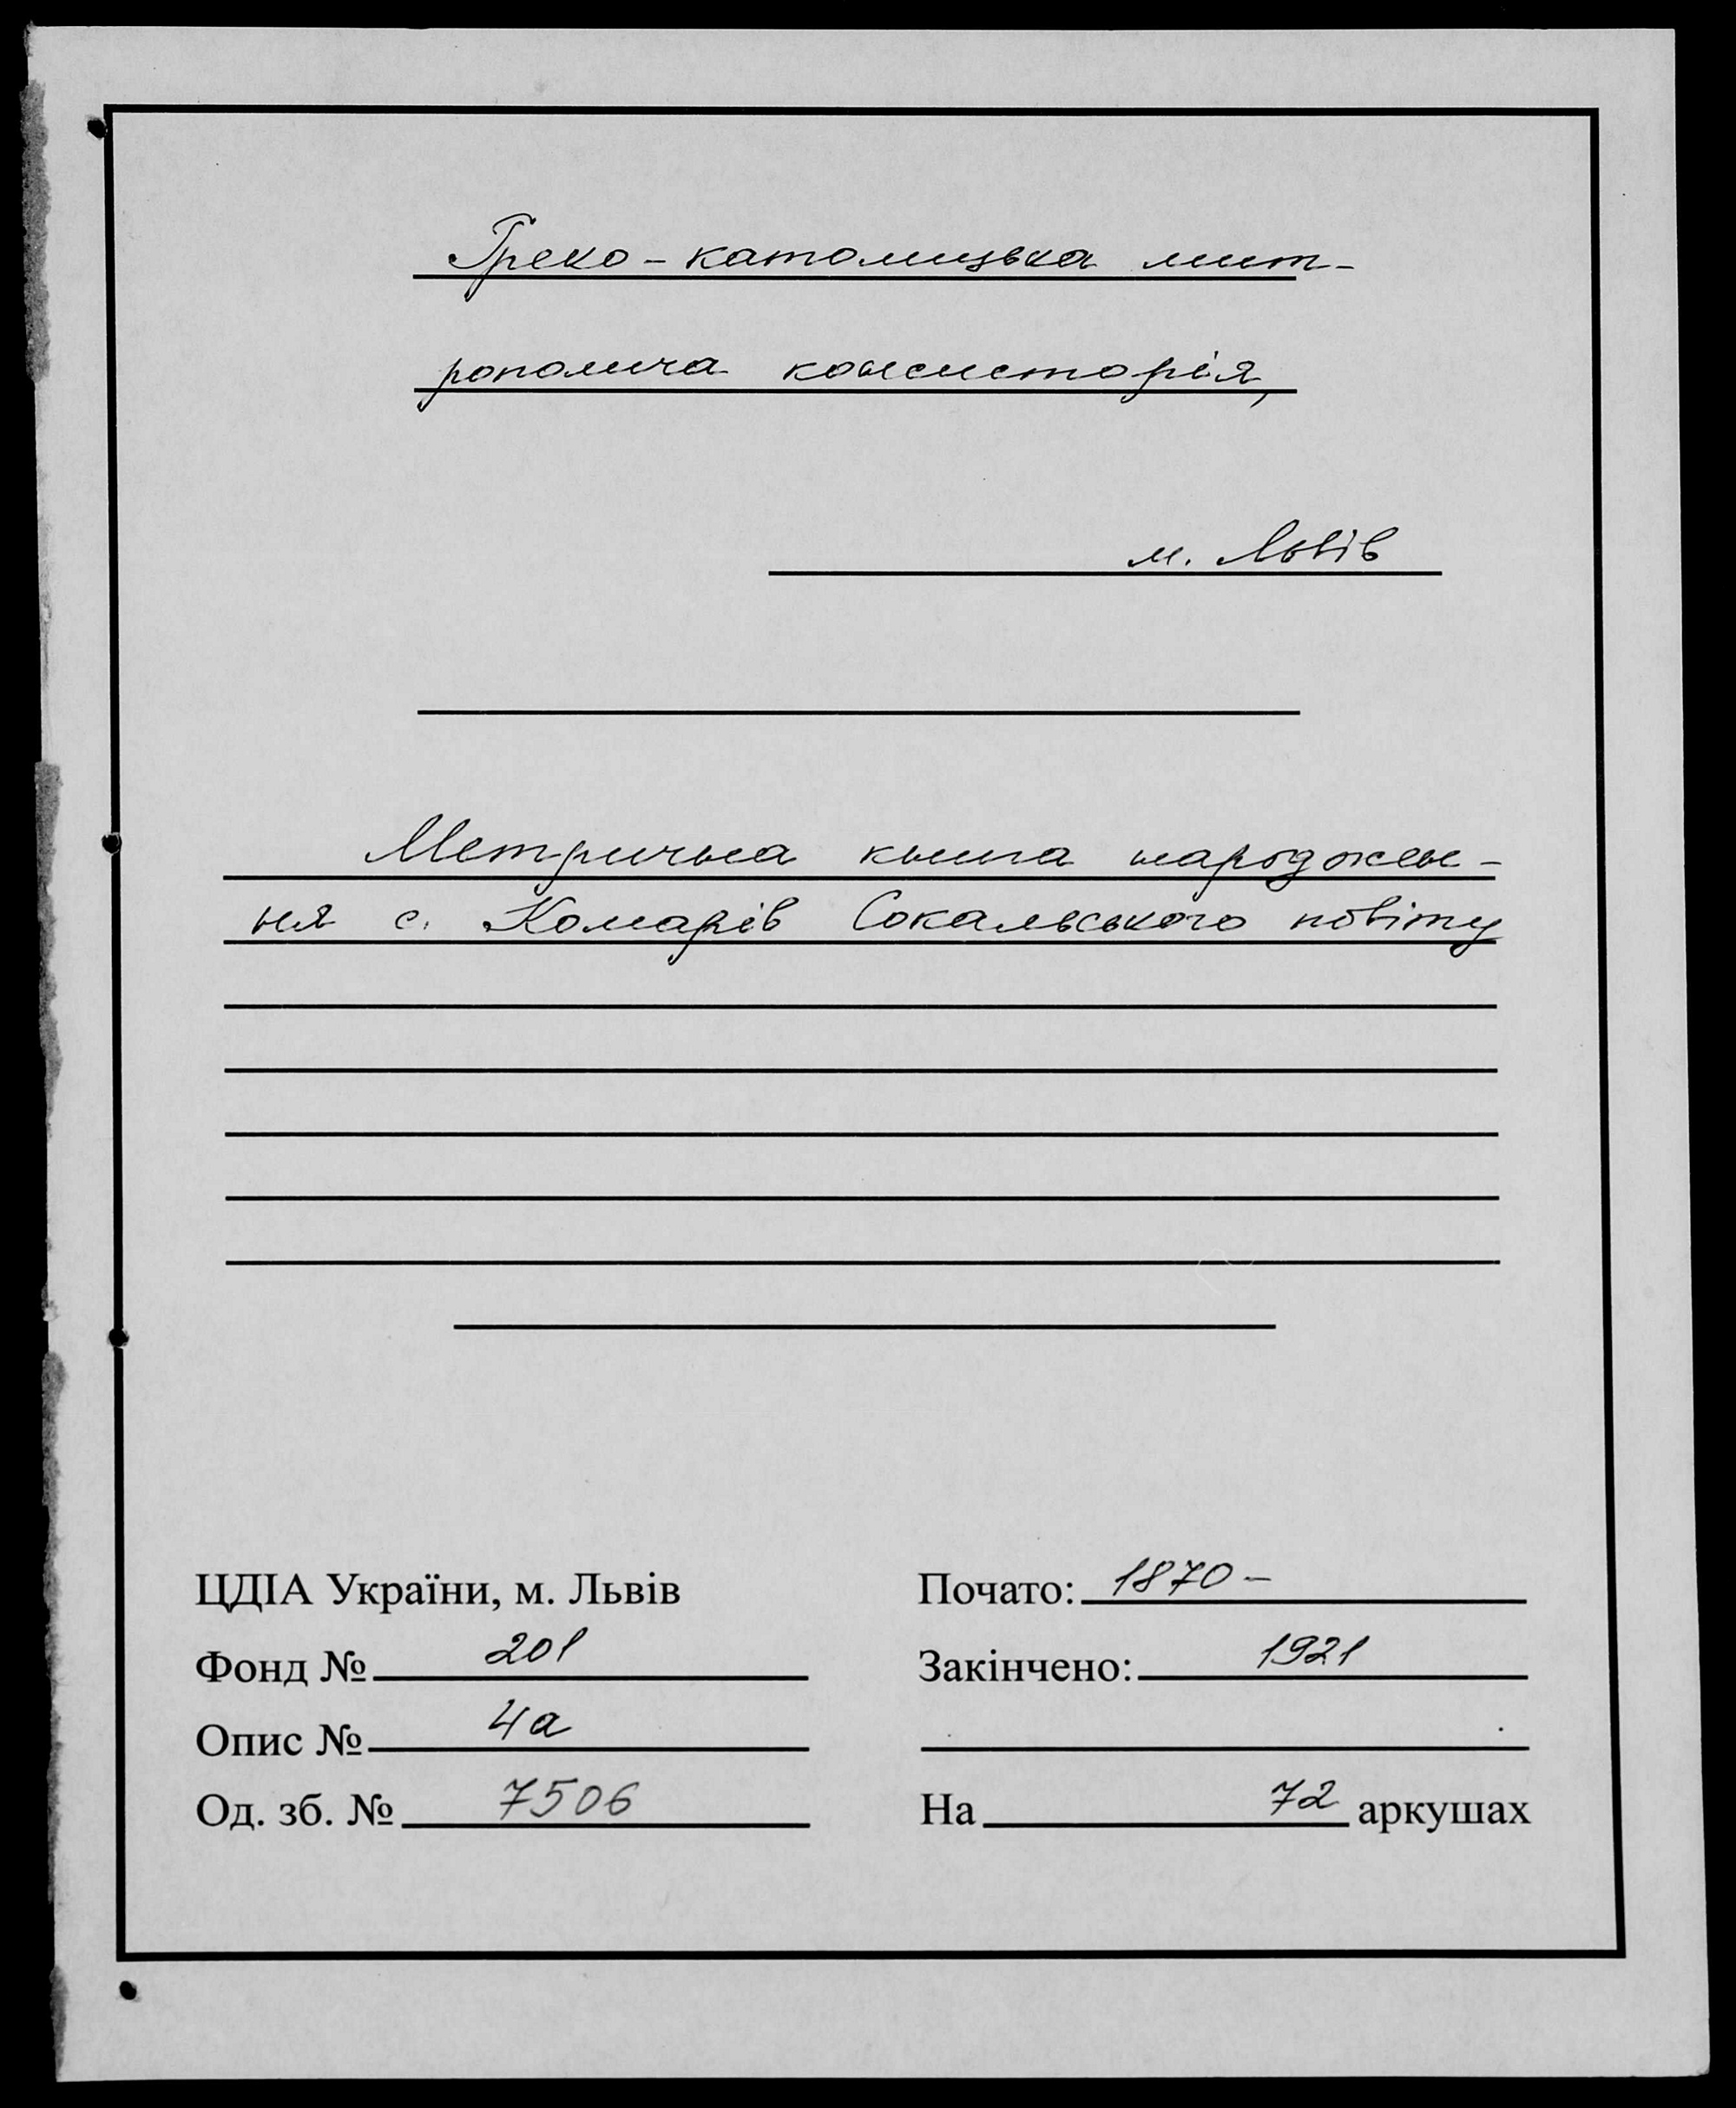 Греко-католицька мит-
рополича консисторія,
м. Львів
Метрична книга народжен-
ня с. Комарів Сокальського повіту
ЦДІА України, м. Львів
Фонд № 201
Опис № 4а
Од. зб. № 7506
Почато: 1870 -
Закінчено: 1921
На 72 аркушах